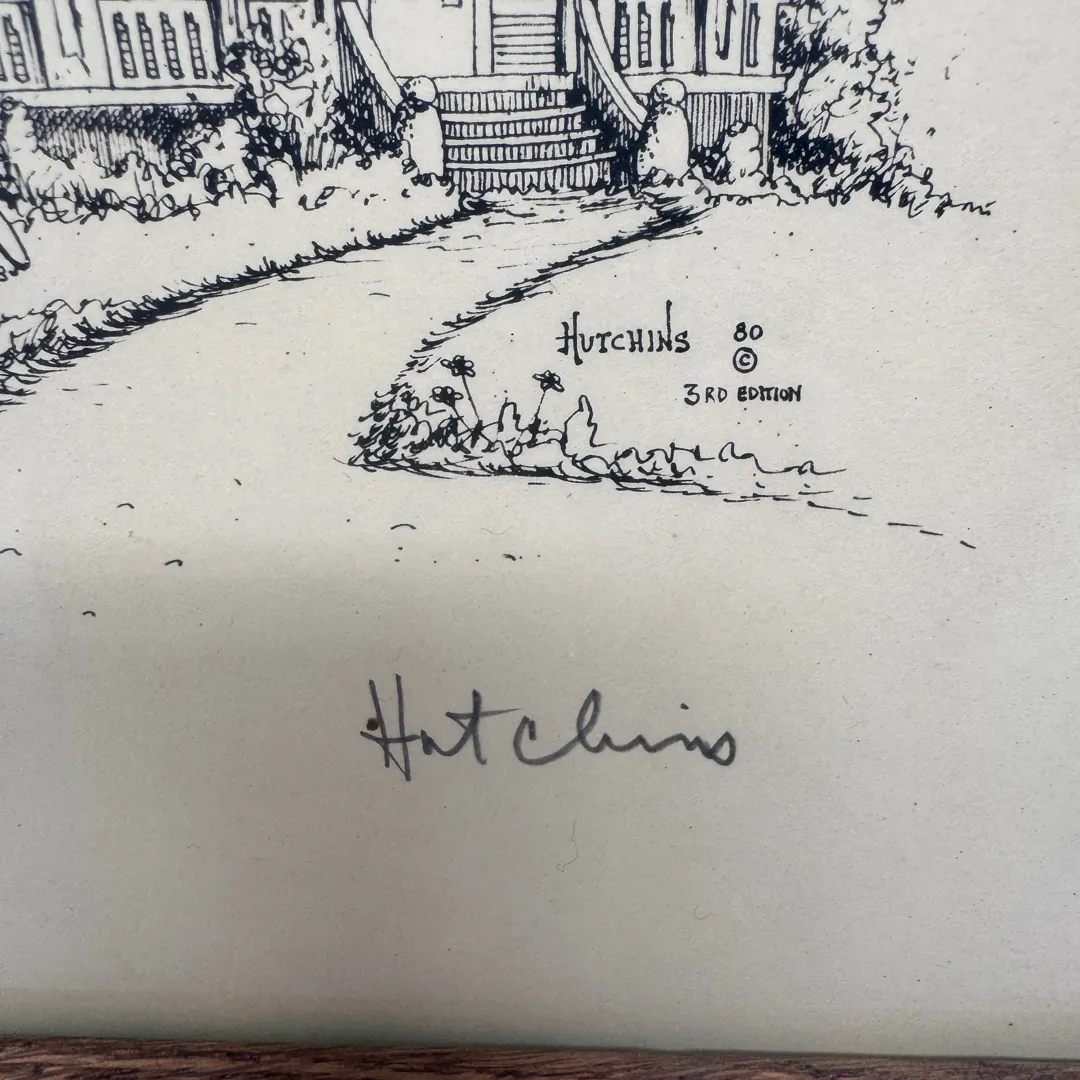 HUTCHINS 80
©
3RD EDITION
Hutchins